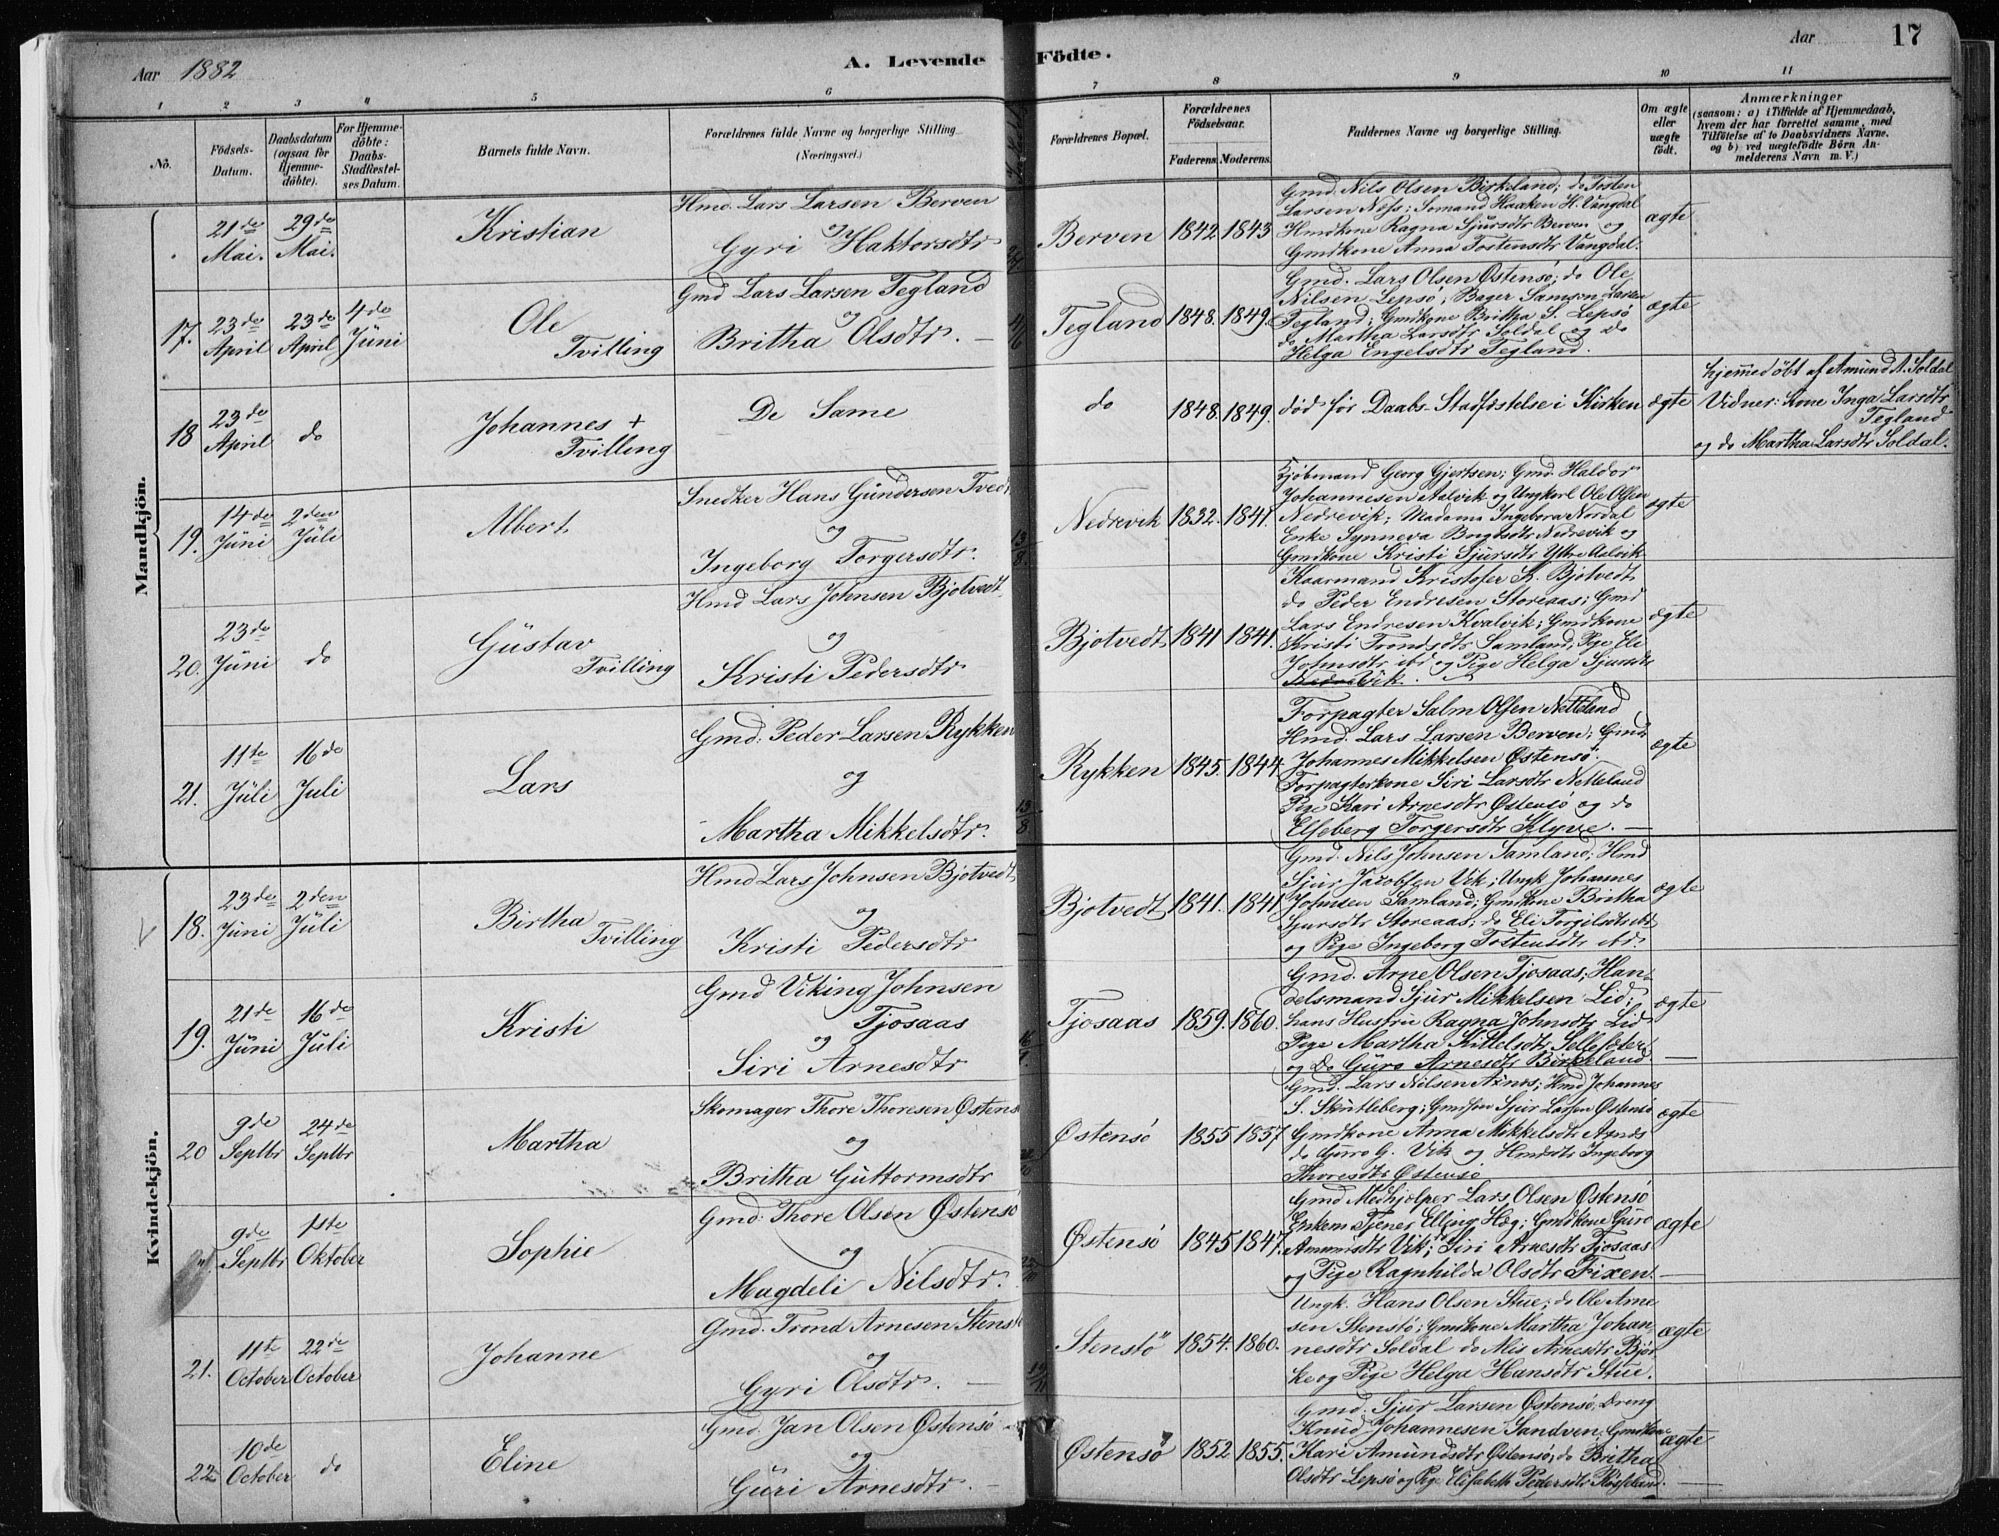 Aar 1882
A. Levende Födte.
Aar 17
1 2 3 4 5 6 7 8 9 10 11
No.
Födsels-Datum.
Daabsdatum (ogsaa for Hjemme-döbte).
For Hjemme-döbte: Daabs-Stadfæstel-ses Datum.
Barnets fulde Navn.
Forældrenes fulde Navne og borgerlige Stilling (Næringsvei.)
Forældrenes Bopæl.
Forældrenes Födselsaar.
Faderens. Moderens.
Faddernes Navne og borgerlige Stilling.
Om ægte eller uægte födt.
Anmærkninger
(saasom: a) i Tilfælde af Hjemmedaab, hvem der har forrettet samme, med Tilföielse af to Daabsvidners Navne, og b) ved uægtefödte Börn An-melderens Navn m. V.)
Mandkjön.
21de Mai. 29de Mai. Kristian
Hmd. Lars Larsen Berven
og
Gyri Haktorsdtr
Berven 1842 1843
Gmd. Nils Olsen Birkeland; do Tosten
Larsen Næs; Sømand Haaken H. Vangdal
Hmdkone Ragna Sjursdtr Berven og
Gmdkone Anna Tostensdtr Vangdal.
ægte
17. 23de April 23de April 4de Jüni Ole Tvilling
Gmd Lars Larsen Tegland
og
Britha Olsdtr. —
Tegland 1848. 1849.
Gmd. Lars Olsen Østensø; do Ole
Nilsen Lepsø; Bager Samson Larsen
Tegland; Gmdkone Britha S. Lepsø
do Martha Larsdtr Soldal og do
Helga Engelsdtr Tegland.
ægte
18 23de April do Johannes + Tvilling
De Samme
do 1848. 1849.
død før Daabs-Stadfæstelse i Kirken
ægte
hjemmedøbt af Amund A. Soldal
Vidner: Kone Inga Larsdtr
Tegland
og do Martha Larsdtr Soldal.
19. 14de Jüni 2den Jüli Albert
Snedker Hans Gundersen Tved
og
Ingeborg Torgersdtr.
Nedrevik 1832. 1841.
Kjøbmand Georg Gjertsen; Gmd. Haldor
Johannesen Aalvik og Ungkarl Ole Olsen
Nedrevik; Madama Ingebora Nordal
Enke Synneva Nedrevik og
Gmdkone Kristi Sjursdtr Ytre Aalvik
ægte
20. 23de Jüni do Güstav Tvilling
Hmd Lars Johnsen Bjotvedt
og
Kristi Pedersdtr
Bjotvedt 1841 1841.
Kaarmand Kristofer K. Bjotvedt
do Peder Endresen Storeaas; Gmd
Lars Endresen Kvalvik; Gmdkone
Kristi Trondsdtr Samland, Pige Eli
Johnsdtr ibd og Pige Helga Sjursdtr
Vik.
ægte
21. 11te Jüli 16de Juli Lars
Gmd: Peder Larsen Rykken
og
Martha Mikkelsdtr.
13/8
Rykken 1845. 1844.
Forpagter Salm Olsen Netteland
Hmd. Lars Larsen Berven; Gmd
Johannes Mikkelsen Østensø
Forpagterkone Siri Larsdtr Netteland
Pige Kari Arnesdtr Østensø og do
Elseberg Torgersdtr Klyve. —
ægte
Kvindekjön.
18. 23de Jüni 2den Jüli Birtha Tvilling
Hmd Lars Johnsen Bjotvedt
og
Kristi Pedersdtr
Bjotvedt 1841. 1841
Gmd. Nils Johnsen Samland; Hmd
Sjur Jacobsen Vik; Ungk Johannes
Johnsen Samland; Gmdkone Britha
Sjursdtr Storeaas; do Eli Torgilsdtr ibd
og Pige Ingeborg Tostensdtr
ægte
19. 21de Jüni 16de Juli Kristi
Gmd Viking Johnsen
Tjosaas
og
Siri Arnesdtr
Tjosaas 1859. 1860.
Gmd. Arne Olsen Tjosaas; Han-
delsmand Sjur Mikkelsen Lid;
hans Hustru Ragna Johnsdtr Lid
Pige Martha Kittelsdtr Sellesæter
og do Guro Arnesdtr Birkeland
ægte
20 9de Septbr 24de Septbr Martha
Skomager Thore Thoresen Østensø
og
Britha Guttormsdtr
Østensø 1855 1857
Gmd. Lars Nilsen Axnes; Hmd Johannes
S. Skutleberg; Gmdssøn Sjur Larsen Østensø
Gmdkone Anna Mikkelsdtr Axnes
do Guro G. Vik og Hmdsdtr Ingeborg
Thoresdtr Østensø
ægte
9de Septbr 1ste Oktober Sophie
Gmd: Thore Olsen Østensø
og
Magdeli Nilsdtr.
Østensø 1845 1847.
Gmd Medhjælper Lars Olsen Østensø
Enkem Tjener Elling Hæg; Gmdkone Guro
Amunsdtr Vik; do Siri Arnesdtr Tjosaas
og Pige Ragnhilda Olsdtr Fixen.
ægte
21. 11te October 22de October Johanne
Gmd. Trond Arnesen Stenstø
og
Gyri Olsdtr. —
19/11
Stenstø 1854. 1860.
Ungk. Hans Olsen Stue; do Ole Arne
sen Stenstø; Gmdkone Martha Johan-
nesdtr Soldal do Arnesdtr Bjør
ke og Pige Helga Hansdtr Stue.
ægte
22 10de October do Eline
Gmd. Jan Olsen Østensø
og
Güri Arnesdtr. —
Østensø 1852. 1855.
Gmd. Sjur Larsen Østensø, Dreng
Knud Johannesen Sandven, Gmdkone
Kari Amundsdtr Østensø; do Britha
Olsdtr Lepsø og Pige Elisabeth Pedersdtr Røsseland
ægte